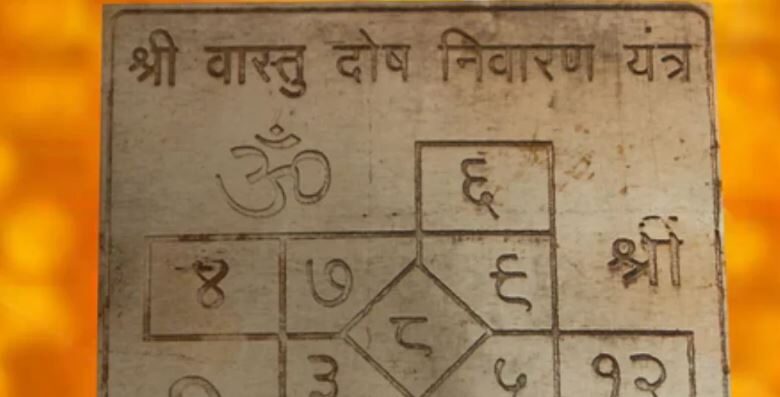 श्री वास्तु दोष निवारण यंत्र
ॐ ६
श्रीं
४ ७ ९
८
३ ५ १२